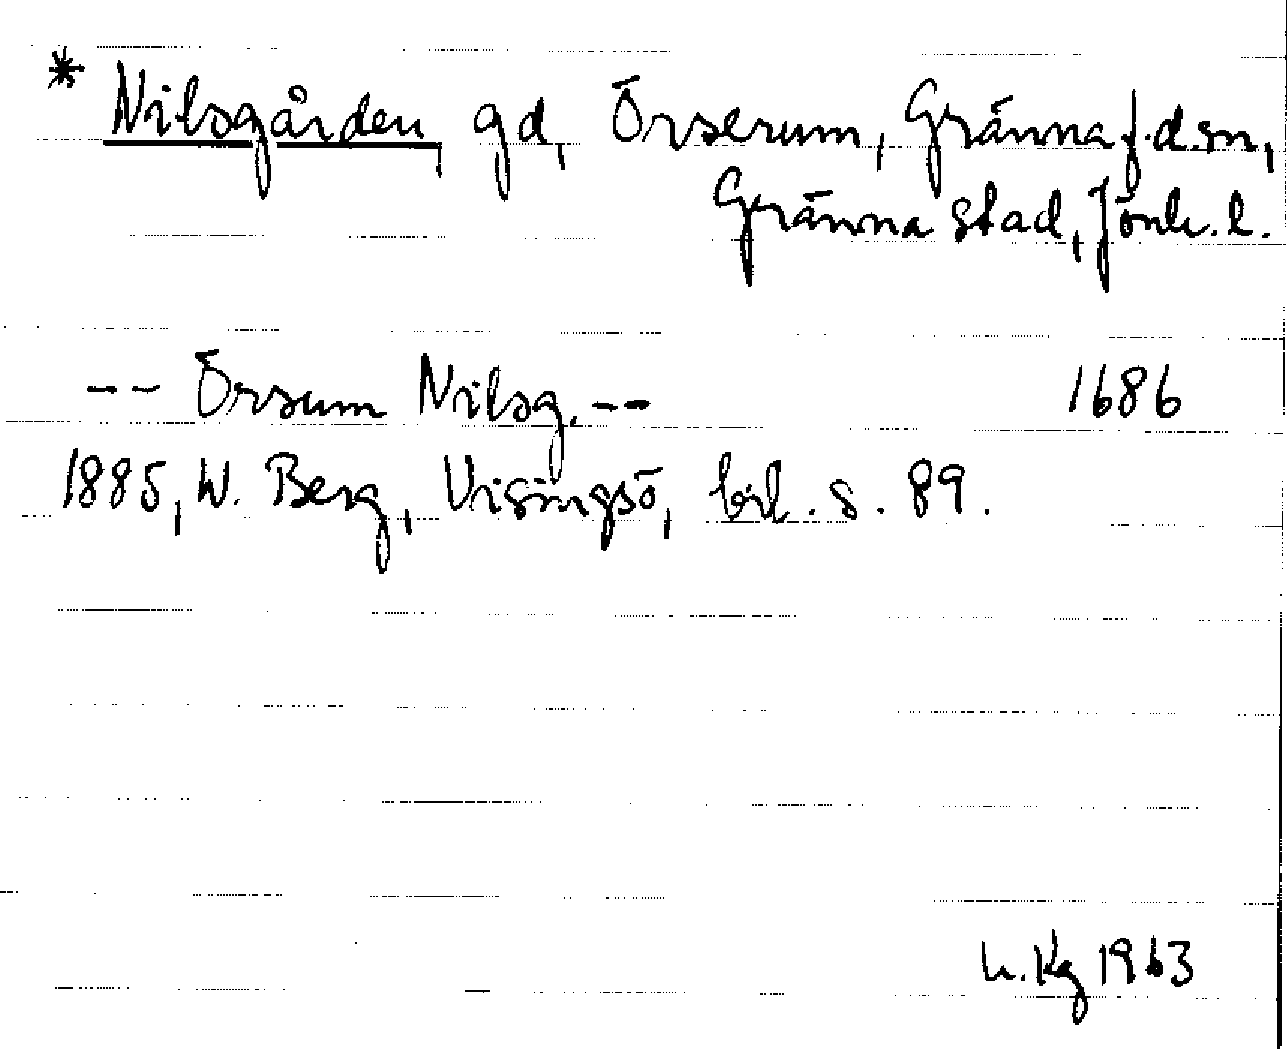 * Nilsgården, gd, Örserum, Gränna f.d. sn,
Gränna stad, Jönk. l.
-- Örsum Nilsg. -- 1686
1885, W. Berg, Visingsö, bil. s. 89.
h. Kg 1963